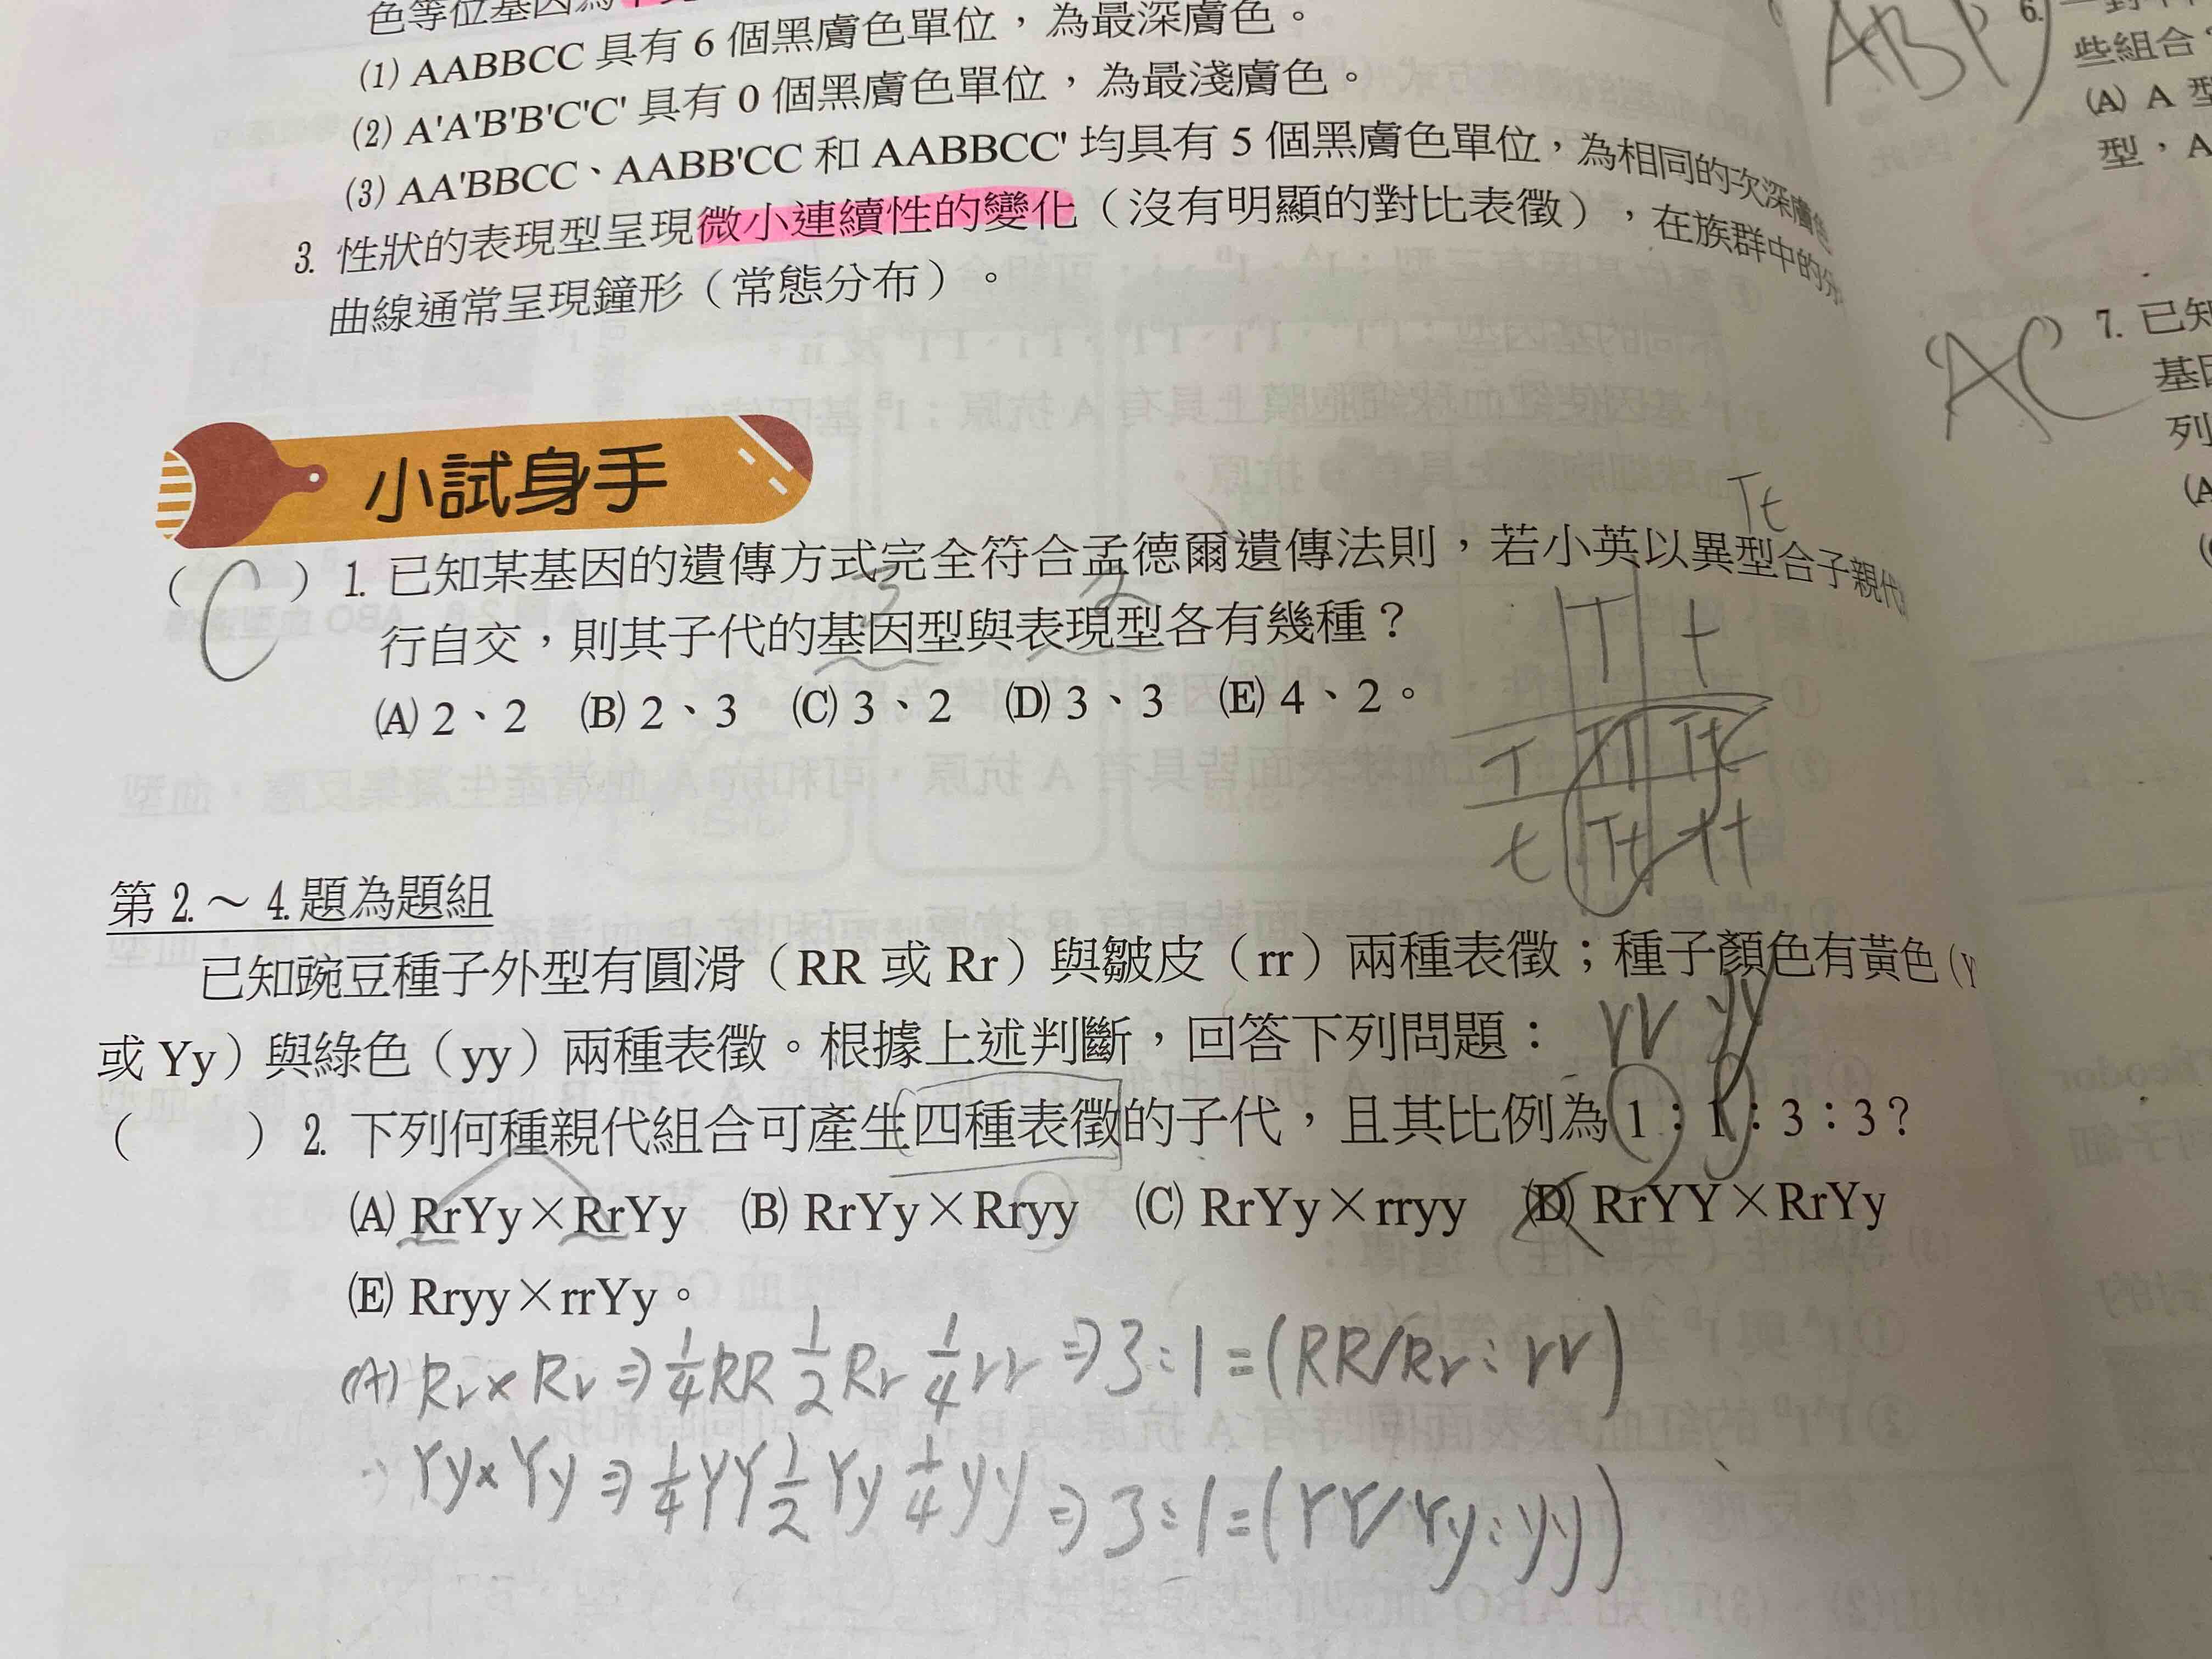 色等位基因為
(1) AABBCC 具有 6 個黑膚色單位，為最深膚色。
(2) A'A'B'B'C'C' 具有 0 個黑膚色單位，為最淺膚色。
(3) AA'BBCC、AABB'CC 和 AABBCC' 均具有 5 個黑膚色單位，為相同的次深膚色
3. 性狀的表現型呈現微小連續性的變化（沒有明顯的對比表徵），在族群中的分
曲線通常呈現鐘形（常態分布）。
小試身手
Tt
（ C ）1. 已知某基因的遺傳方式完全符合孟德爾遺傳法則，若小英以異型合子親代
3 2
行自交，則其子代的基因型與表現型各有幾種？
(A) 2、2 (B) 2、3 (C) 3、2 (D) 3、3 (E) 4、2。
T t
T TT Tt
t Tt tt
第 2.～ 4. 題為題組
已知豌豆種子外型有圓滑（RR 或 Rr）與皺皮（rr）兩種表徵；種子顏色有黃色（Y
或 Yy）與綠色（yy）兩種表徵。根據上述判斷，回答下列問題：
rr yy
（ ）2. 下列何種親代組合可產生四種表徵的子代，且其比例為 1：1：3：3？
(A) RrYy×RrYy (B) RrYy×Rryy (C) RrYy×rryy (D) RrYY×RrYy
(E) Rryy×rrYy。
(A) Rr×Rr ⇒ 1/4 RR 1/2 Rr 1/4 rr ⇒ 3:1=(RR/Rr:rr)
Yy×Yy ⇒ 1/4 YY 1/2 Yy 1/4 yy ⇒ 3:1=(YY/Yy:yy)
6.
些組合
(A) A 型
型，A
AC
7. 已知
基因
列
(A